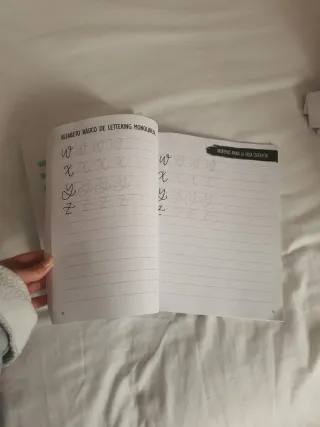 ALFABETO BÁSICO DE LETTERING MONOLINEAL
w w w w
x x x x
y y y y
z z z z
w w w w
x x x x
y y y y
z z z z